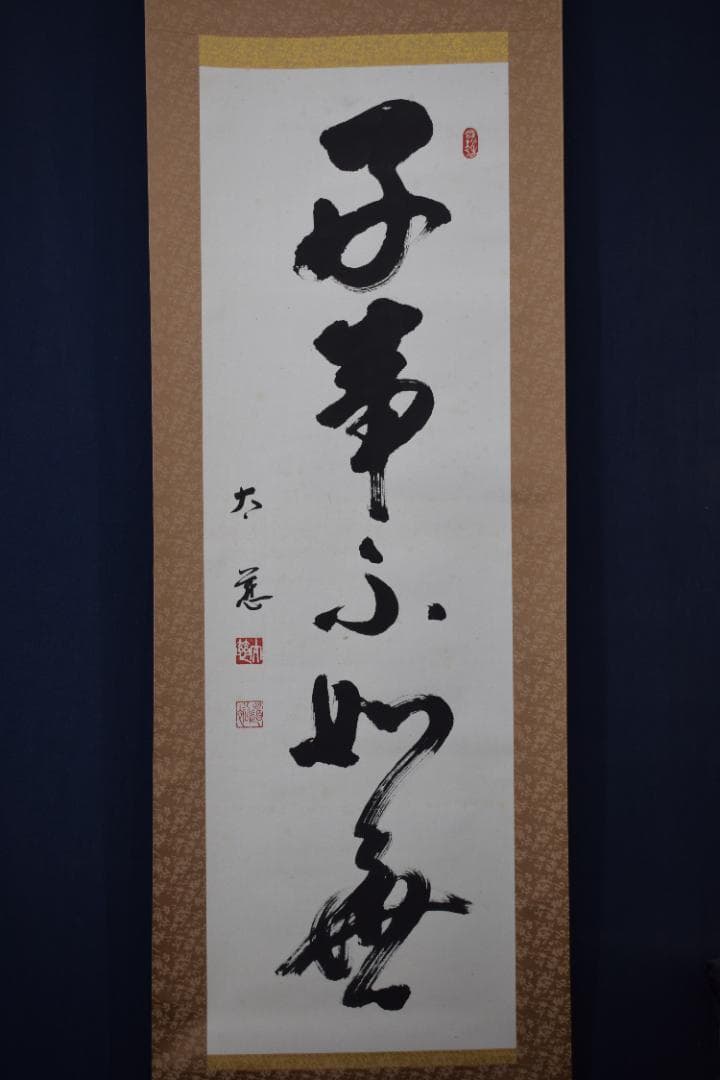 好事不如無
大慈